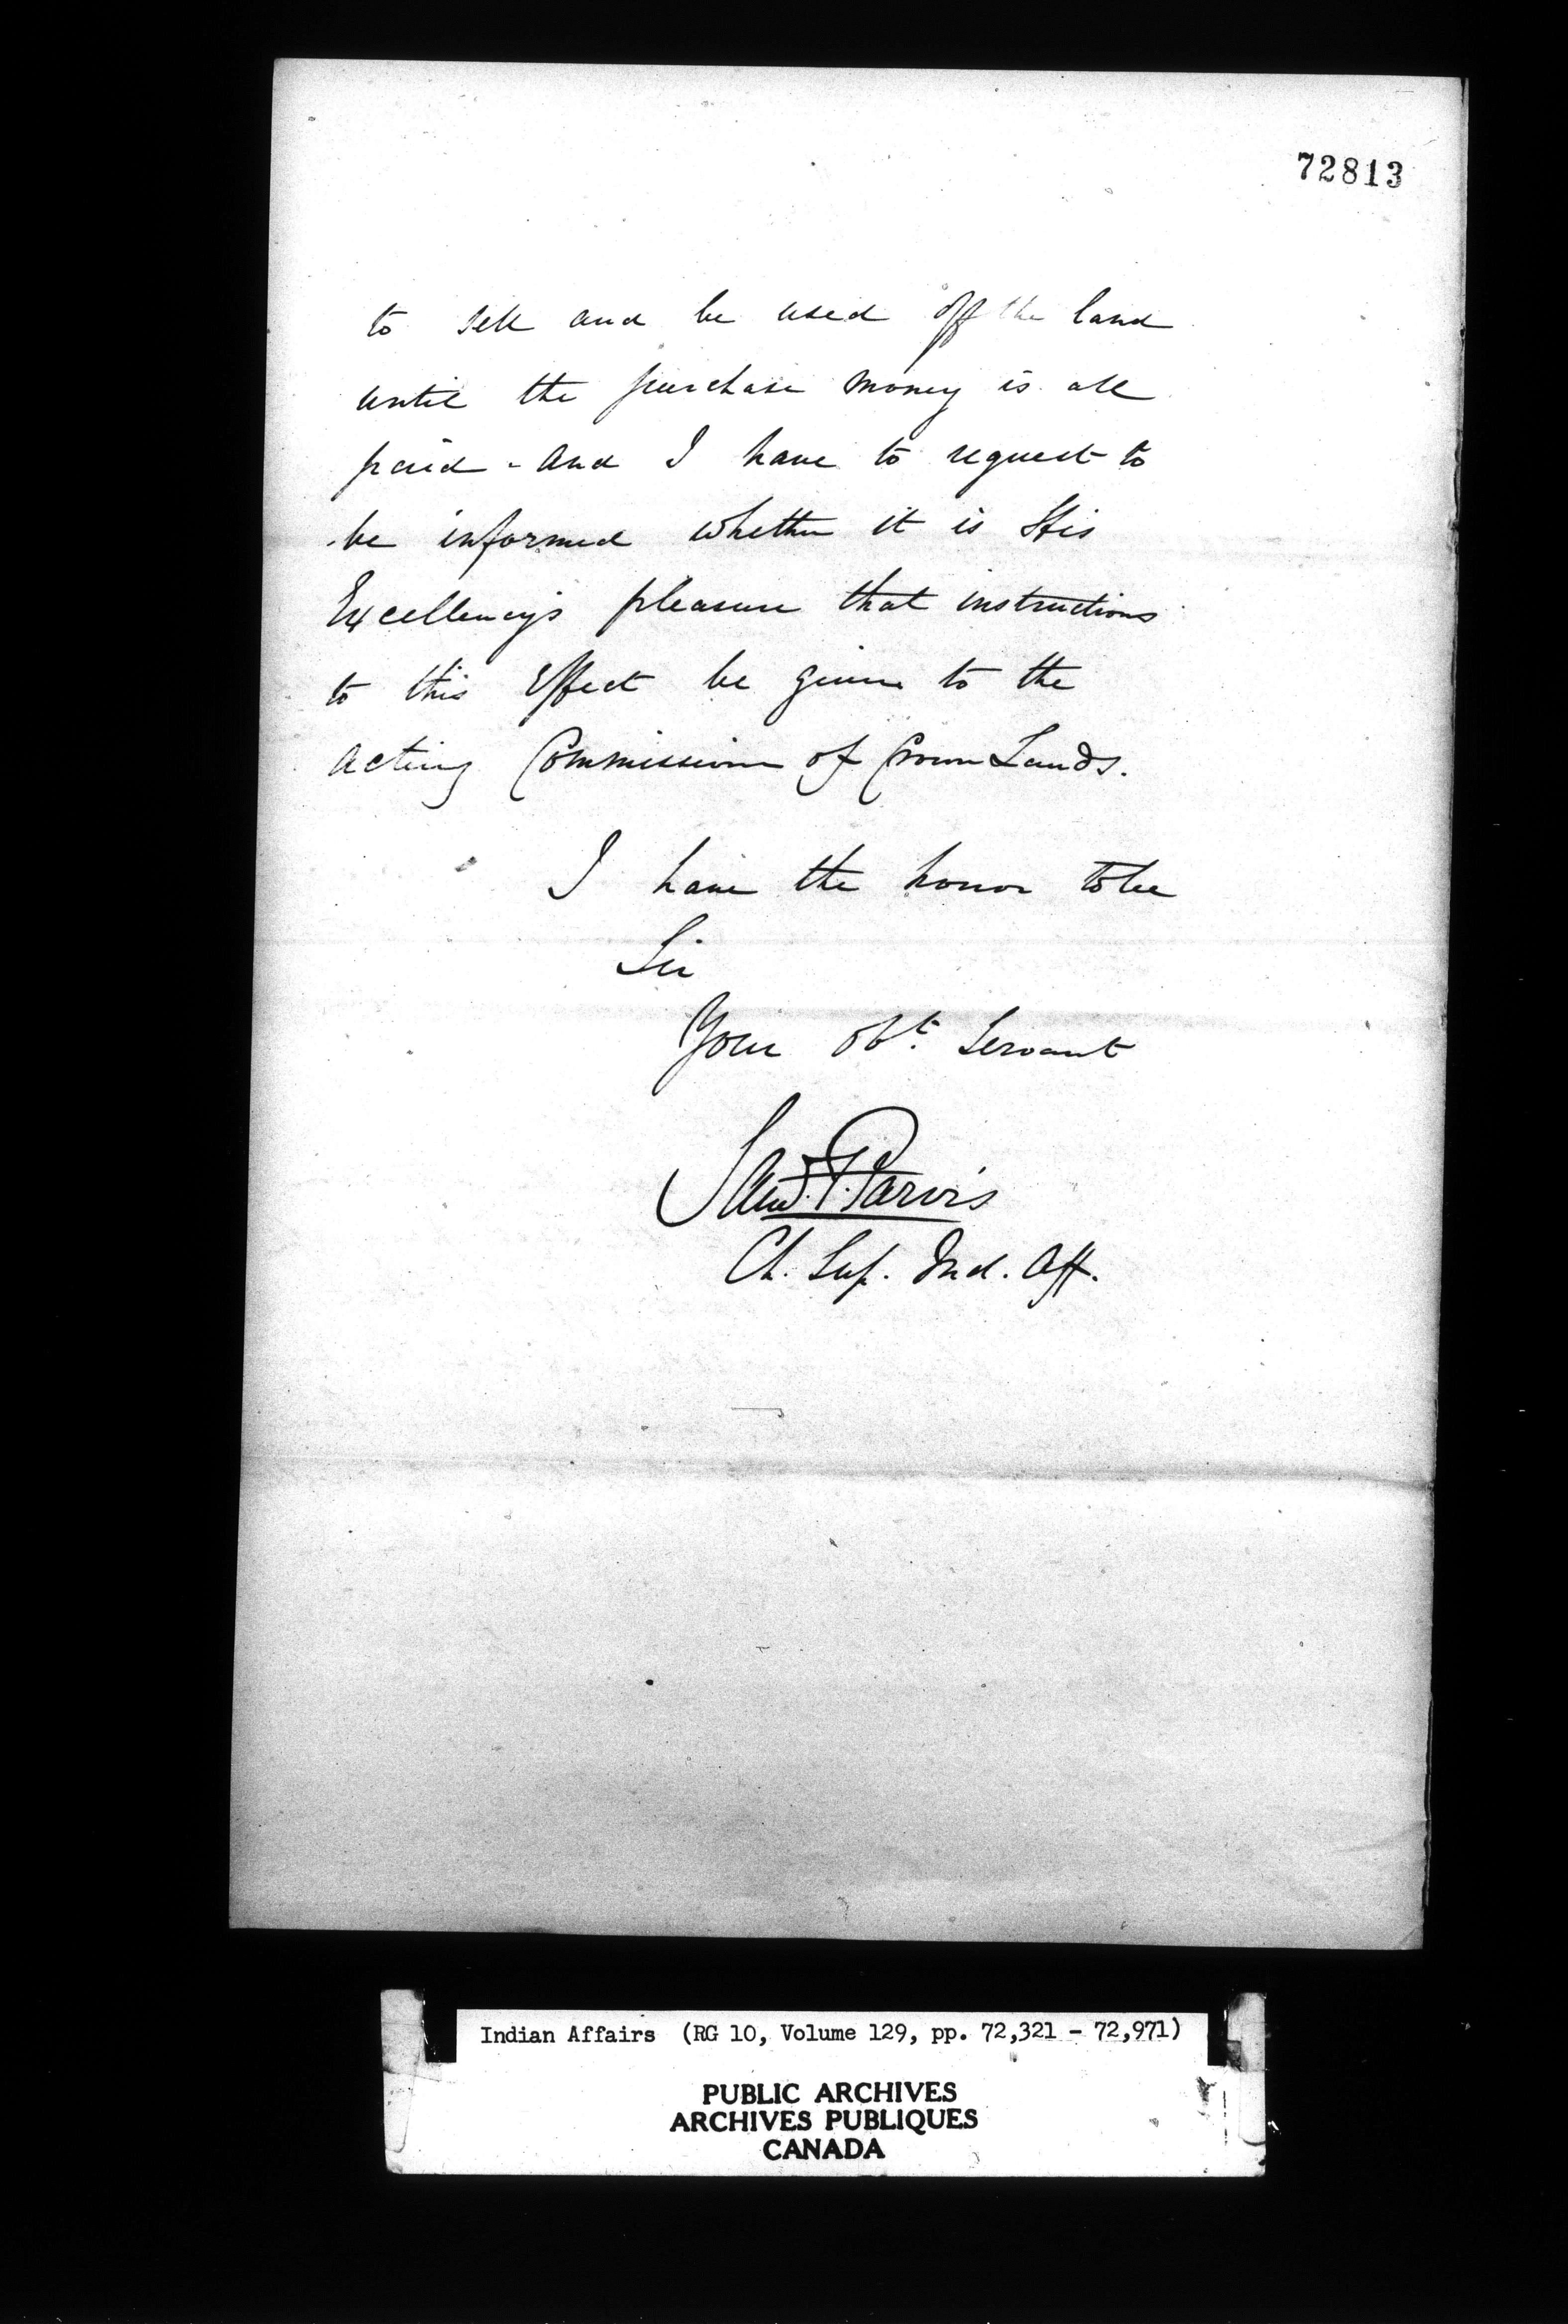 72813
to sell and be used off the land
until the purchase money is all
paid - and I have to request to
be informed whether it is His
Excellency's pleasure that instructions
to this effect be given to the
acting Commissioner of Crown Lands.
I have the honor to be
Sir
Your obt. Servant
Saml. P. Jarvis
Ch. Sup. Ind. Aff.
Indian Affairs (RG 10, Volume 129, pp. 72,321 - 72,971)
PUBLIC ARCHIVES
ARCHIVES PUBLIQUES
CANADA